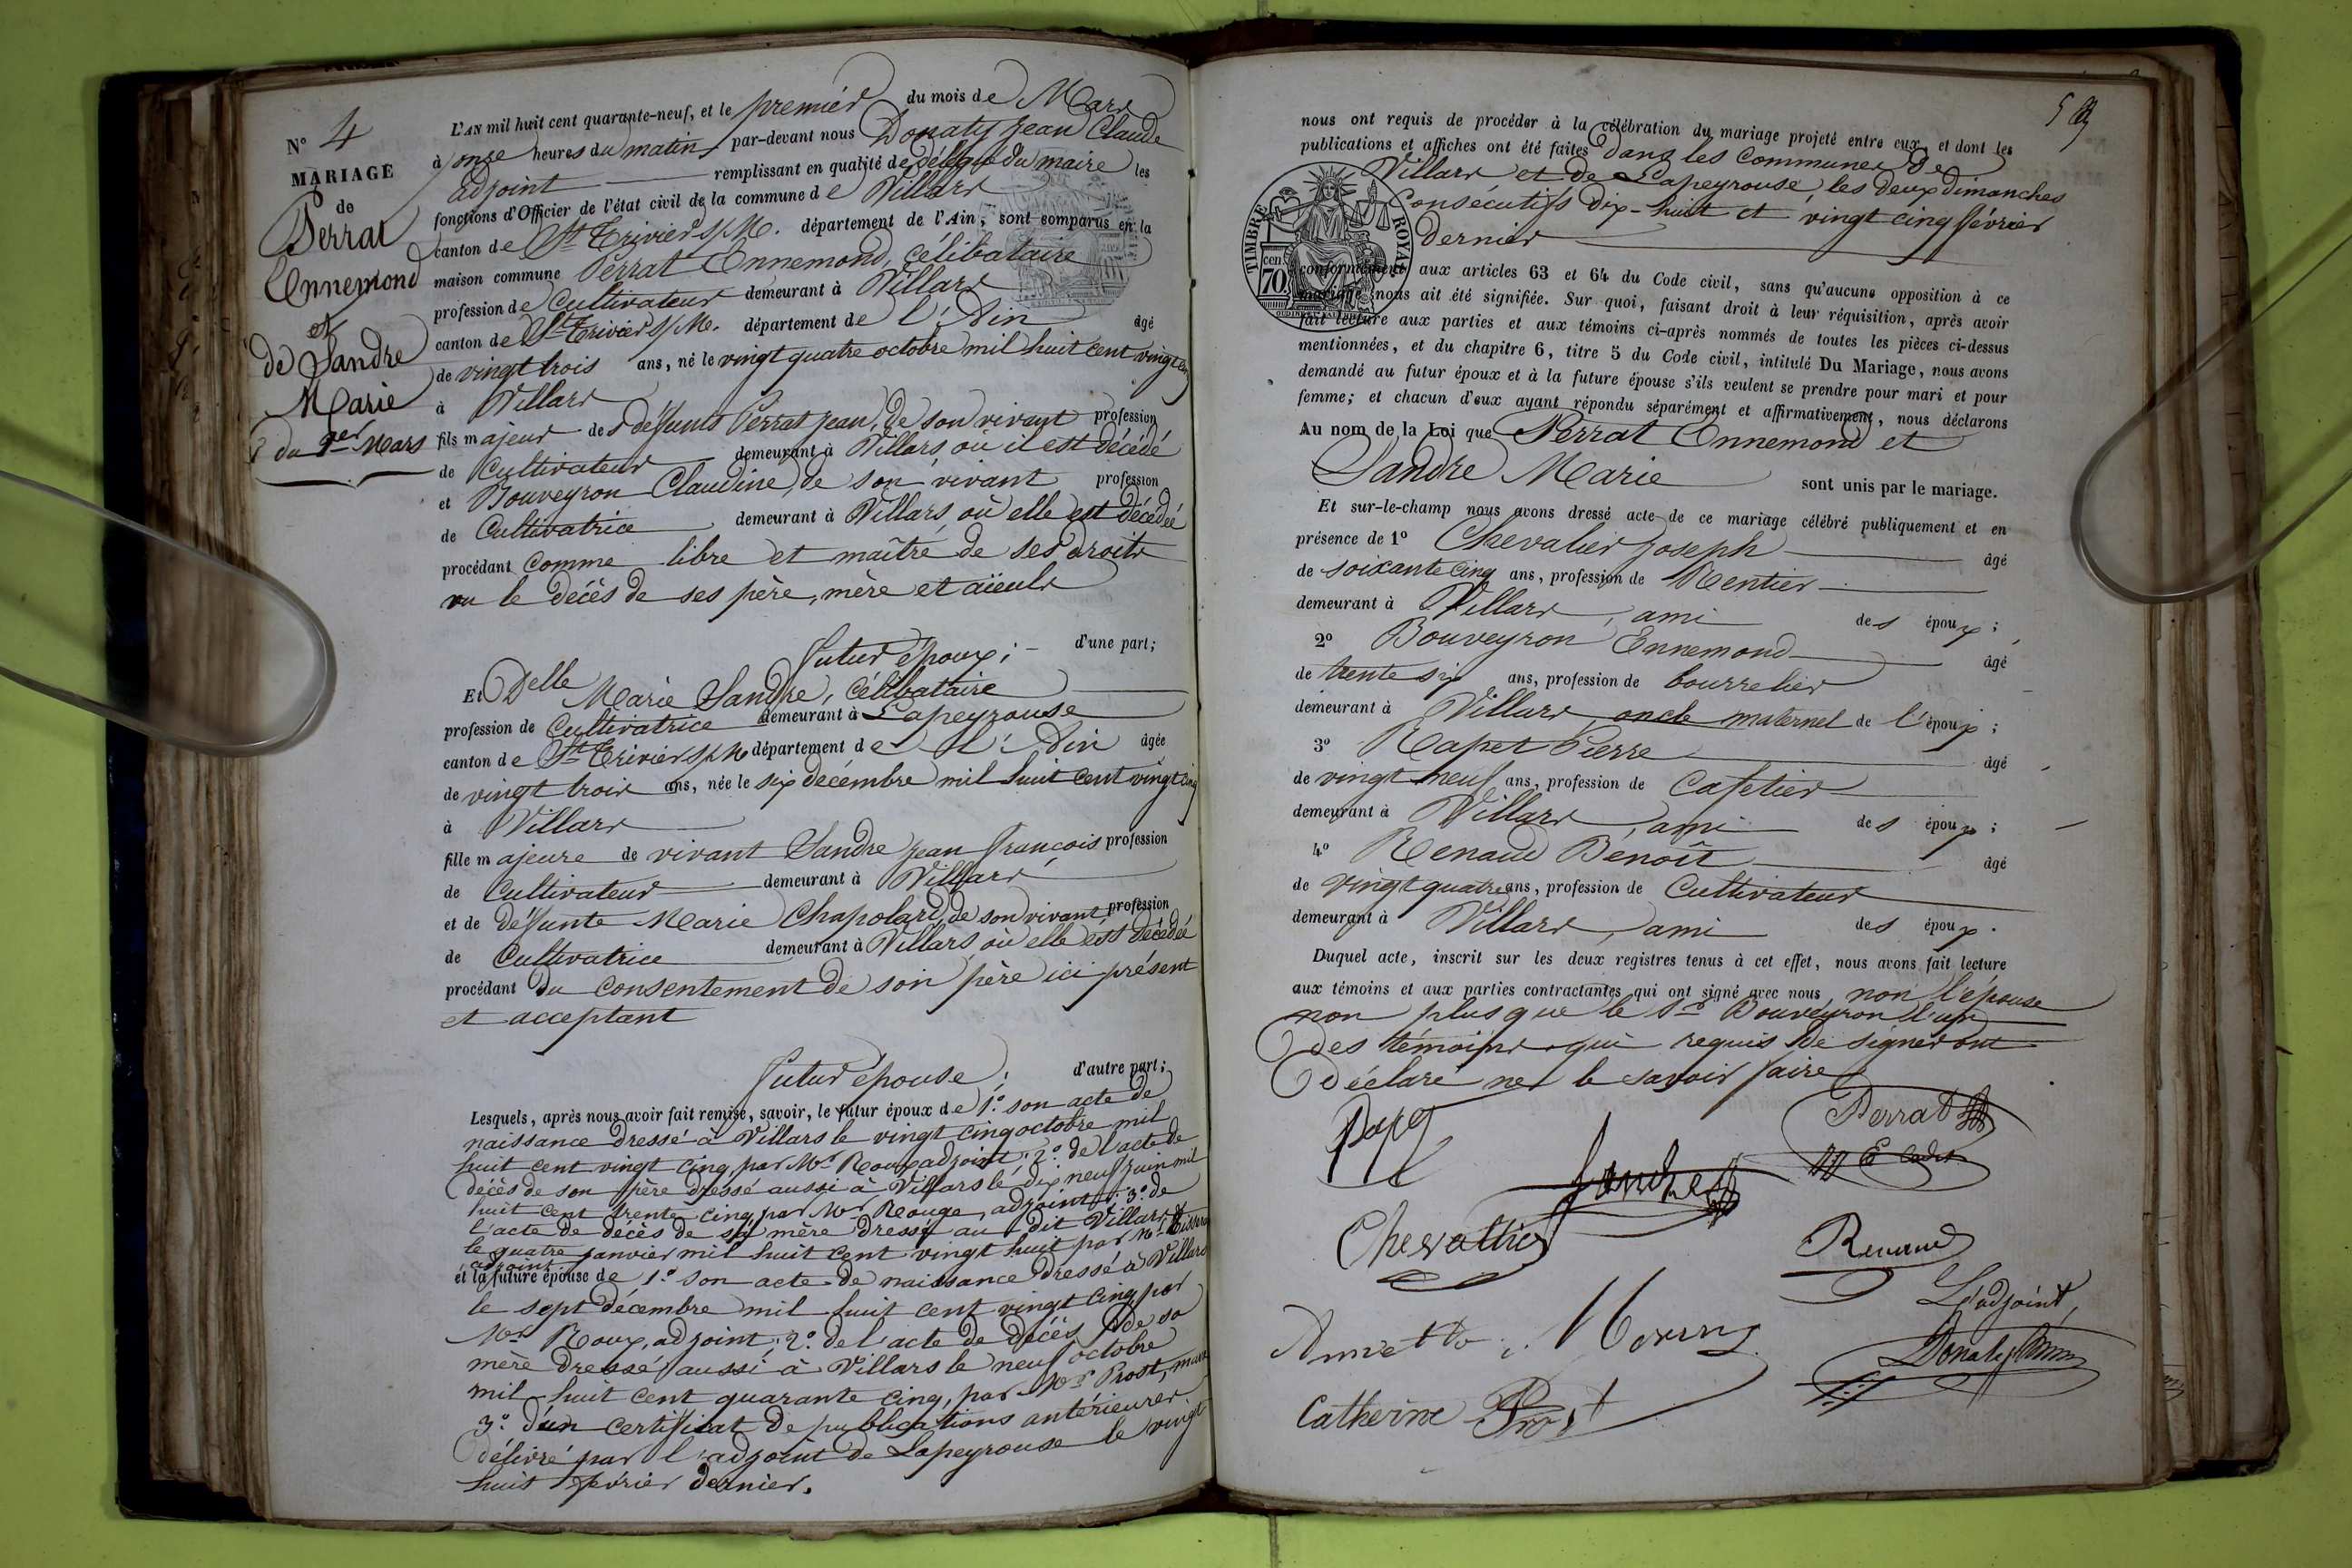 N° 4
MARIAGE
de
Perrat
Ennemond
et
de Sandre
Marie
du 1er Mars
L'AN mil huit cent quarante-neuf, et le premier du mois de Mars
à onze heures du matin par-devant nous Donaty Jean Claude
adjoint remplissant en qualité de délégué du maire les
fonctions d'Officier de l'état civil de la commune de Villars
canton de St Trivier s/M. département de l'Ain, sont comparus en la
maison commune Perrat Ennemond, célibataire
profession de Cultivateur demeurant à Villars
canton de St Trivier s/M. département de l'Ain âgé
de vingt trois ans, né le vingt quatre octobre mil huit cent vingt cinq
à Villars
fils majeur des défunts Perrat Jean, de son vivant profession
de Cultivateur demeurant à Villars où il est décédé
et Bouveyron Claudine, de son vivant profession
de Cultivatrice demeurant à Villars, où elle est décédée
procédant comme libre et maître de ses droits
vu le décès de ses père, mère et aïeuls
futur époux; d'une part;
Et Delle Marie Sandre, célibataire
profession de Cultivatrice demeurant à Lapeyrouse
canton de St Trivier s/M département de l'Ain âgée
de vingt trois ans, née le six décembre mil huit cent vingt cinq
à Villars
fille majeure de vivant Sandre Jean françois profession
de Cultivateur demeurant à Villars
et de défunte Marie Chapolard, de son vivant profession
de Cultivatrice demeurant à Villars, où elle est décédée
procédant du consentement de son père ici présent
et acceptant
futur épouse; d'autre part;
Lesquels, après nous avoir fait remise, savoir, le futur époux de 1.° son acte de
naissance dressé à Villars le vingt cinq octobre mil
huit cent vingt cinq, par Mr Roux adjoint; 2.° de l'acte de
décès de son père dressé aussi à Villars le dix neuf juin mil
huit cent trente cinq par Mr Rouge, adjoint; 3.° de
l'acte de décès de sa mère dressé au dit Villars
le quatre janvier mil huit cent vingt huit par Mr
adjoint
et la future épouse de 1.° son acte de naissance dressé à Villars
le sept décembre mil huit cent vingt cinq par
Mr Roux, adjoint; 2.° de l'acte de décès de sa
mère dressé aussi à Villars le neuf octobre
mil huit cent quarante cinq, par Mr Prost, maire
3.° d'un certificat de publications antérieures
délivré par l'adjoint de Lapeyrouse le vingt
huit février dernier.
nous ont requis de procéder à la célébration du mariage projeté entre eux, et dont les
publications et affiches ont été faites dans les communes de
Villars et de Lapeyrouse, les deux dimanches
Consécutifs dix-huit et vingt cinq février
dernier
TIMBRE ROYAL
cen. 70
conformément aux articles 63 et 64 du Code civil, sans qu'aucune opposition à ce
mariage nous ait été signifiée. Sur quoi, faisant droit à leur réquisition, après avoir
fait lecture aux parties et aux témoins ci-après nommés de toutes les pièces ci-dessus
mentionnées, et du chapitre 6, titre 5 du Code civil, intitulé Du Mariage, nous avons
demandé au futur époux et à la future épouse s'ils veulent se prendre pour mari et pour
femme; et chacun d'eux ayant répondu séparément et affirmativement, nous déclarons
Au nom de la Loi que Perrat Ennemond et
Sandre Marie sont unis par le mariage.
Et sur-le-champ nous avons dressé acte de ce mariage célébré publiquement et en
présence de 1° Chevalier Joseph âgé
de soixante cinq ans, profession de Rentier
demeurant à Villars, ami des époux;
2° Bouveyron Ennemond âgé
de trente six ans, profession de bourrelier
demeurant à Villars, oncle maternel de l'époux;
3° Rapet Pierre âgé
de vingt neuf ans, profession de Cafetier
demeurant à Villars, ami des époux;
4° Renaud Benoît âgé
de vingt quatre ans, profession de Cultivateur
demeurant à Villars, ami des époux.
Duquel acte, inscrit sur les deux registres tenus à cet effet, nous avons fait lecture
aux témoins et aux parties contractantes qui ont signé avec nous, non l'épouse
non plus que le Sr Bouveyron l'un
des témoins qui requis de signer ont
déclaré ne le savoir faire
Perrat
Sandre
Chevallier
Renaud
L'adjoint,
Donaty
Catherine Prost